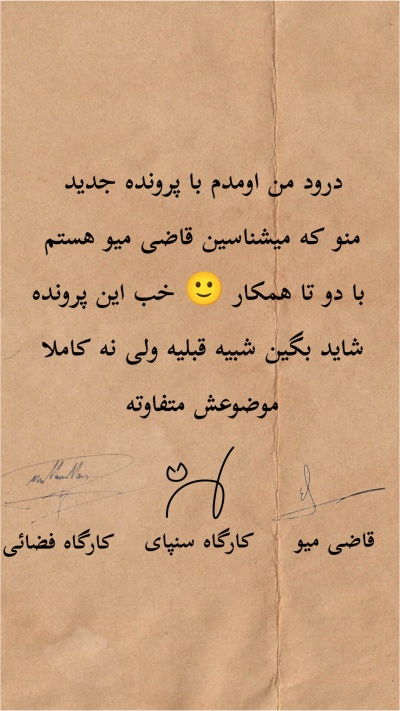 درود من اومدم با پرونده جدید
منو که میشناسین قاضی میو هستم
با دو تا همکار 🙂 خب این پرونده
شاید بگین شبیه قبلیه ولی نه کاملا
موضوعش متفاوته
قاضی میو کارگاه سنپای کارگاه فضائی